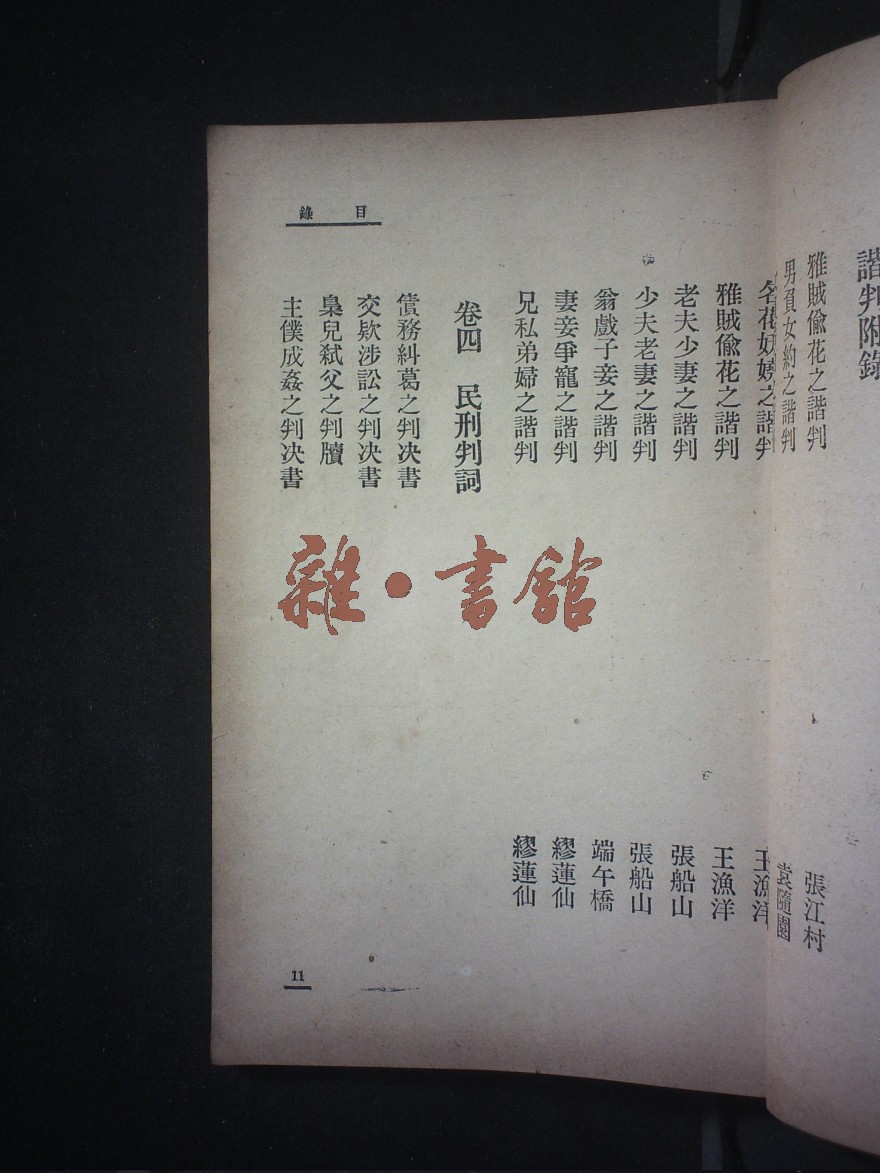 諧判附錄
雅賊偷花之諧判 張江村
男負女約之諧判 袁隨園
名花妖嬈之諧判 王漁洋
目錄
雅賊偷花之諧判 王漁洋
老夫少妻之諧判 張船山
少夫老妻之諧判 張船山
翁戲子妾之諧判 端午橋
妻妾爭寵之諧判 繆蓮仙
兄私弟婦之諧判 繆蓮仙
卷四 民刑判詞
債務糾葛之判决書
交欵涉訟之判决書
梟兒弒父之判牘
主僕成姦之判决書
11
雜·書館